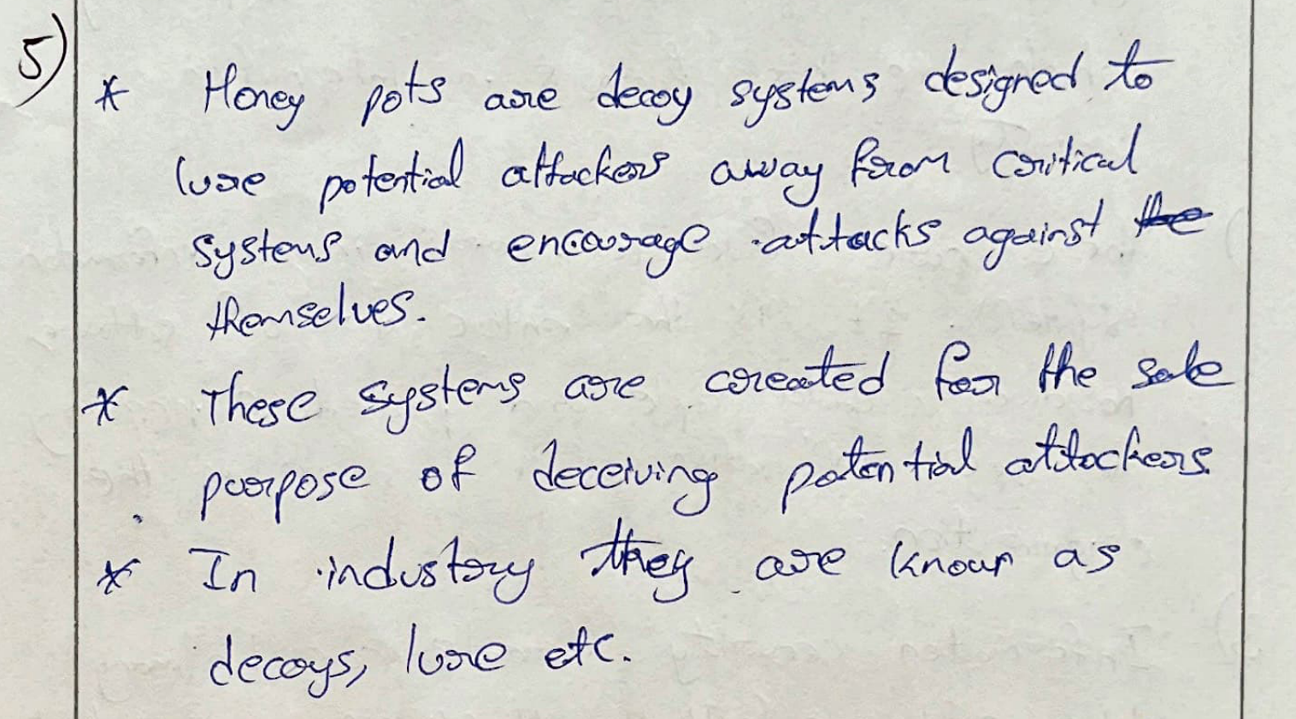 5)
* Honey pots are decoy systems designed to
lure potential attackers away from critical
systems and encourage attacks against the
themselves.
* These systems are created for the sole
purpose of deceiving potential attackers
* In industry they are known as
decoys, lure etc.